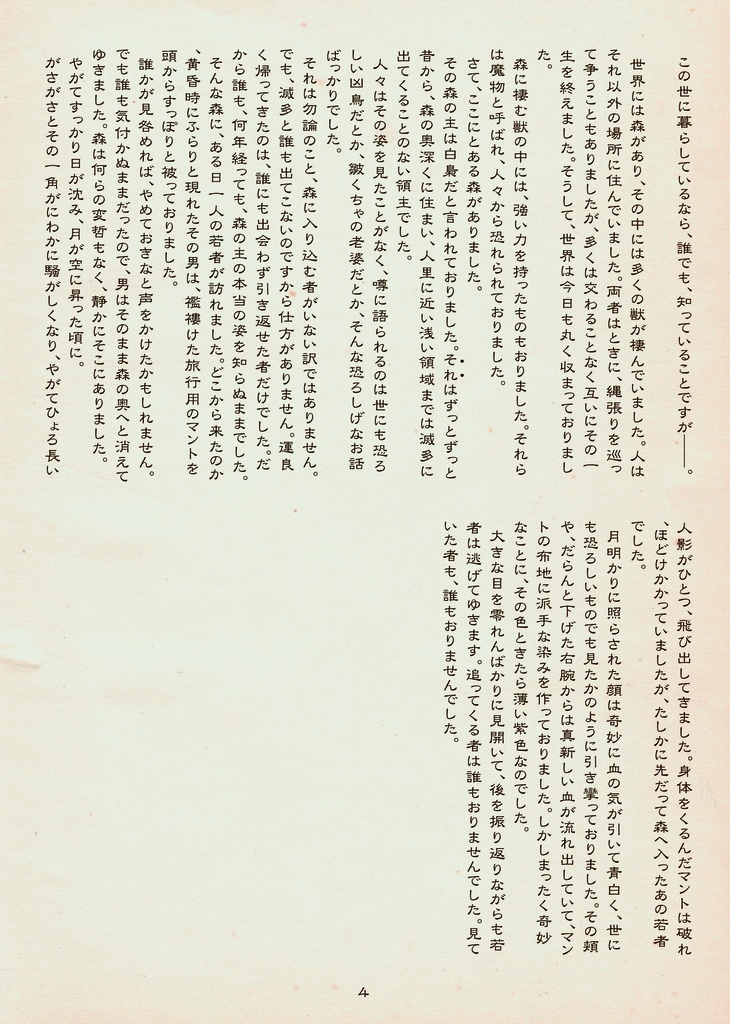 この世に暮らしているなら、誰でも、知っていることですが――。
世界には森があり、その中には多くの獣が棲んでいました。人は
それ以外の場所に住んでいました。両者はときに、縄張りを巡っ
て争うこともありましたが、多くは交わることなく互いにその一
生を終えました。そうして、世界は今日も丸く収まっておりまし
た。
森に棲む獣の中には、強い力を持ったものもおりました。それら
は魔物と呼ばれ、人々から恐れられておりました。
さて、ここにとある森がありました。
その森の主は白梟だと言われておりました。それはずっとずっと
昔から、森の奥深くに住まい、人里に近い浅い領域までは滅多に
出てくることのない領主でした。
人々はその姿を見たことがなく、噂に語られるのは世にも恐ろ
しい凶鳥だとか、皺くちゃの老婆だとか、そんな恐ろしげなお話
ばっかりでした。
それは勿論のこと、森に入り込む者がいない訳ではありません。
でも、滅多と誰も出てこないのですから仕方がありません。運良
く帰ってきたのは、誰にも出会わず引き返せた者だけでした。だ
から誰も、何年経っても、森の主の本当の姿を知らぬままでした。
そんな森に、ある日一人の若者が訪れました。どこから来たのか
、黄昏時にふらりと現れたその男は、襤褸けた旅行用のマントを
頭からすっぽりと被っておりました。
誰かが見咎めれば、やめておきなと声をかけたかもしれません。
でも誰も気付かぬままだったので、男はそのまま森の奥へと消えて
ゆきました。森は何らの変哲もなく、静かにそこにありました。
やがてすっかり日が沈み、月が空に昇った頃に。
がさがさとその一角がにわかに騒がしくなり、やがてひょろ長い
人影がひとつ、飛び出してきました。身体をくるんだマントは破れ
、ほどけかかっていましたが、たしかに先だって森へ入ったあの若者
でした。
月明かりに照らされた顔は奇妙に血の気が引いて青白く、世に
も恐ろしいものでも見たかのように引き攣っておりました。その頬
や、だらんと下げた右腕からは真新しい血が流れ出していて、マン
トの布地に派手な染みを作っておりました。しかしまったく奇妙
なことに、その色ときたら薄い紫色なのでした。
大きな目を零れんばかりに見開いて、後を振り返りながらも若
者は逃げてゆきます。追ってくる者は誰もおりませんでした。見て
いた者も、誰もおりませんでした。
4